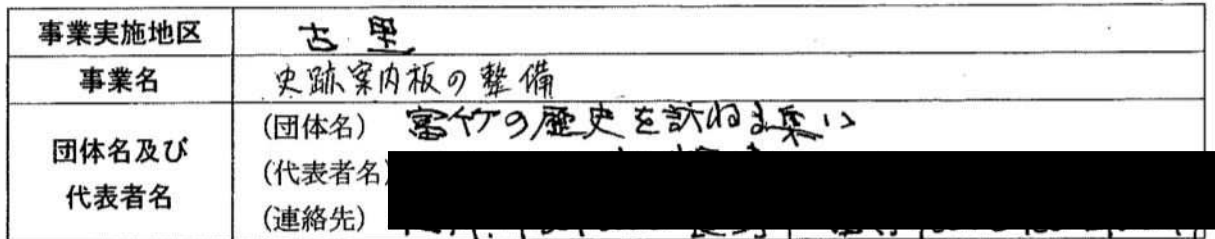 事業実施地区 古里
事業名 史跡案内板の整備
団体名及び代表者名
(団体名) 富竹の歴史を訪ねる集い
(代表者名)
(連絡先)